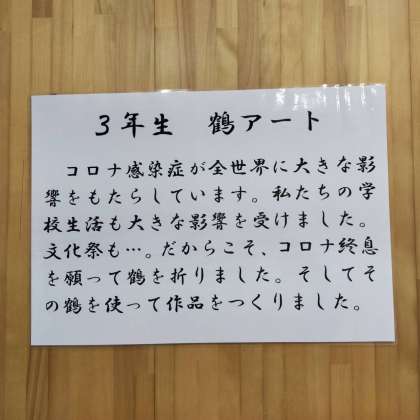 ３年生　鶴アート
コロナ感染症が全世界に大きな影
響をもたらしています。私たちの学
校生活も大きな影響を受けました。
文化祭も…。だからこそ、コロナ終息
を願って鶴を折りました。そしてそ
の鶴を使って作品をつくりました。